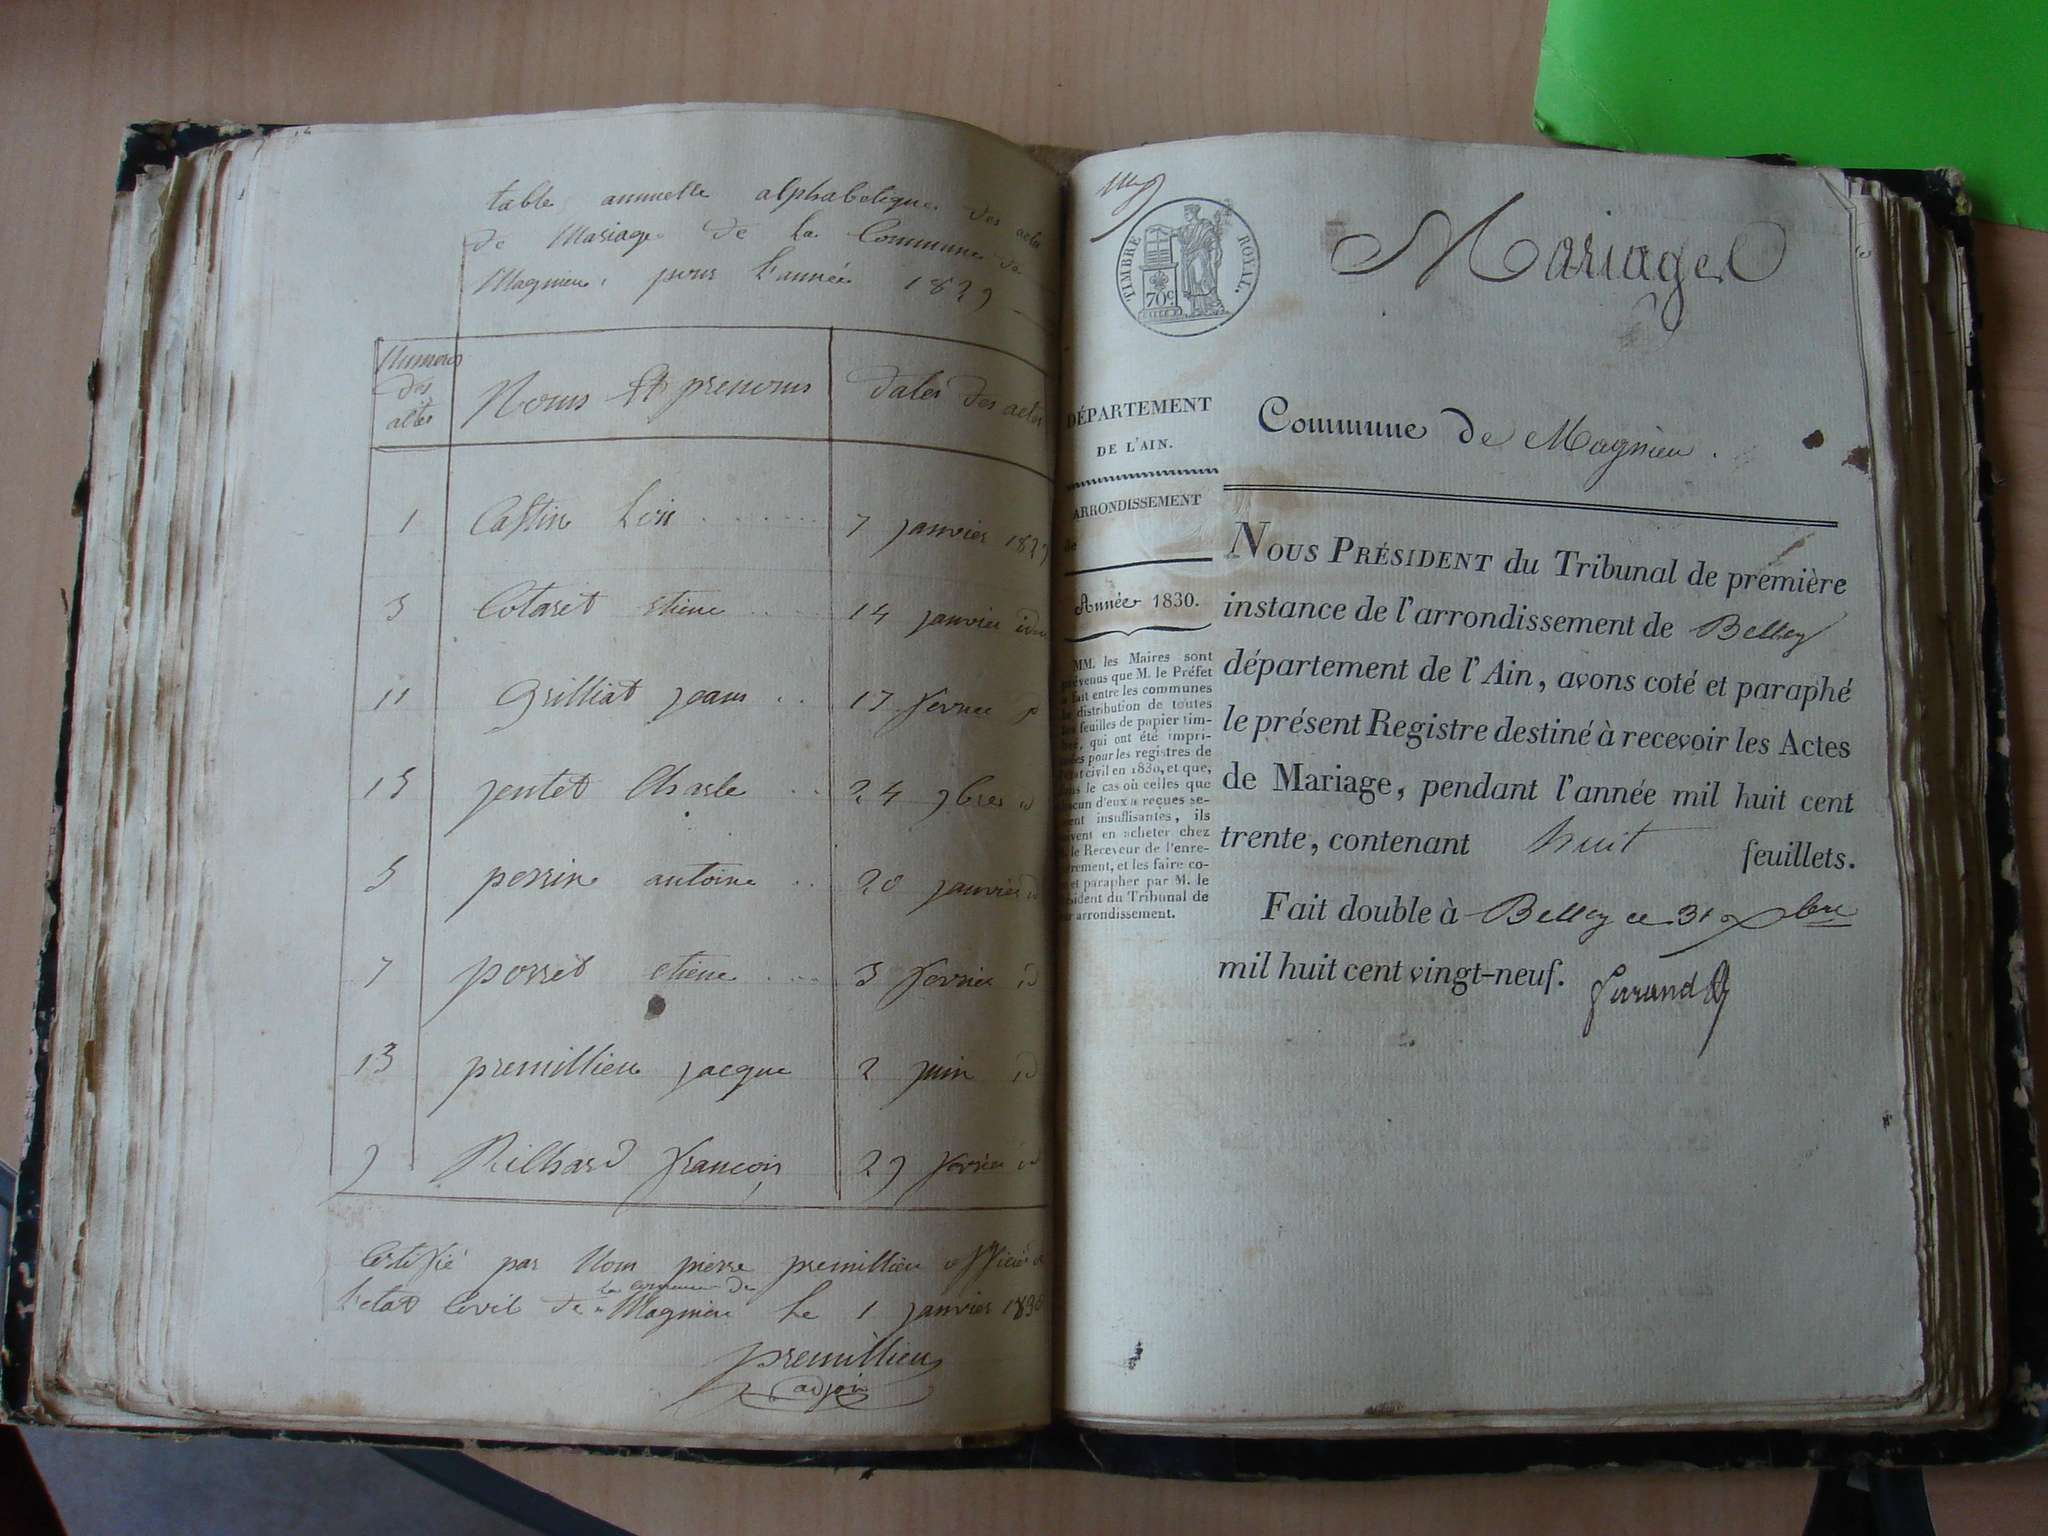 table annuelle alphabetique des actes
de Mariage de la Commune de
Magnieu, pour l'année 1829
Numeros
des
actes
Noms et prenoms
dates des actes
1 Castin 7 janvier 1829
3 Cotaret etiene 14 janvier
11 Grilliat jean 17 fevrier
15 jentet Charle 24 9bres id
5 perrin antoine 20 janvier id
7 porret etiene 3 fevrier id
13 premillieu jacque 2 juin id
9 Richard françois fevrier id
Certifié par Nous pierre premillieu officié
la commune de
L'etat Civil de Magnieu Le 1 janvier 1830
premillieu
adjoin
TIMBRE ROYAL.
70c
Mariages
DÉPARTEMENT
DE L'AIN.
Commune de Magnieu.
ARRONDISSEMENT
de
Année 1830.
MM. les Maires sont
prévenus que M. le Préfet
a fait entre les communes
la distribution de toutes
les feuilles de papier tim-
bré, qui ont été impri-
mées pour les registres de
l'état civil en 1830, et que,
dans le cas où celles que
chacun d'eux a reçues se-
raient insuffisantes, ils
doivent en acheter chez
le Receveur de l'enre-
gistrement, et les faire co-
ter et parapher par M. le
Président du Tribunal de
leur arrondissement.
NOUS PRÉSIDENT du Tribunal de première
instance de l'arrondissement de Belley
département de l'Ain, avons coté et paraphé
le présent Registre destiné à recevoir les Actes
de Mariage, pendant l'année mil huit cent
trente, contenant huit feuillets.
Fait double à Belley ce 31 Xbre
mil huit cent vingt-neuf.